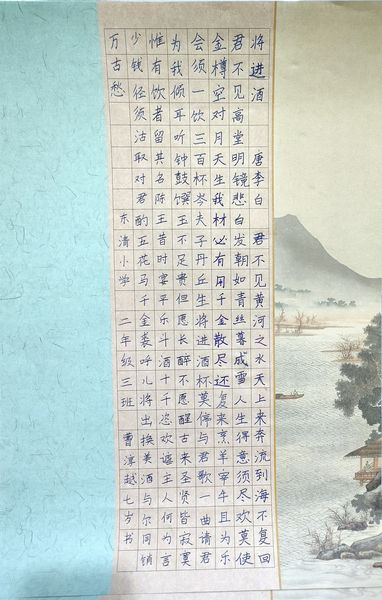 将进酒 唐李白 君不见黄河之水天上来奔流到海不复回
君不见高堂明镜悲白发朝如青丝暮成雪人生得意须尽欢莫使
金樽空对月天生我材必有用千金散尽还复来烹羊宰牛且为乐
会须一饮三百杯岑夫子丹丘生将进酒杯莫停与君歌一曲请君
为我倾耳听钟鼓馔玉不足贵但愿长醉不愿醒古来圣贤皆寂寞
惟有饮者留其名陈王昔时宴平乐斗酒十千恣欢谑主人何为言
少钱径须沽取对君酌五花马千金裘呼儿将出换美酒与尔同销
万古愁 东清小学 二年级三班 曹淳越七岁书